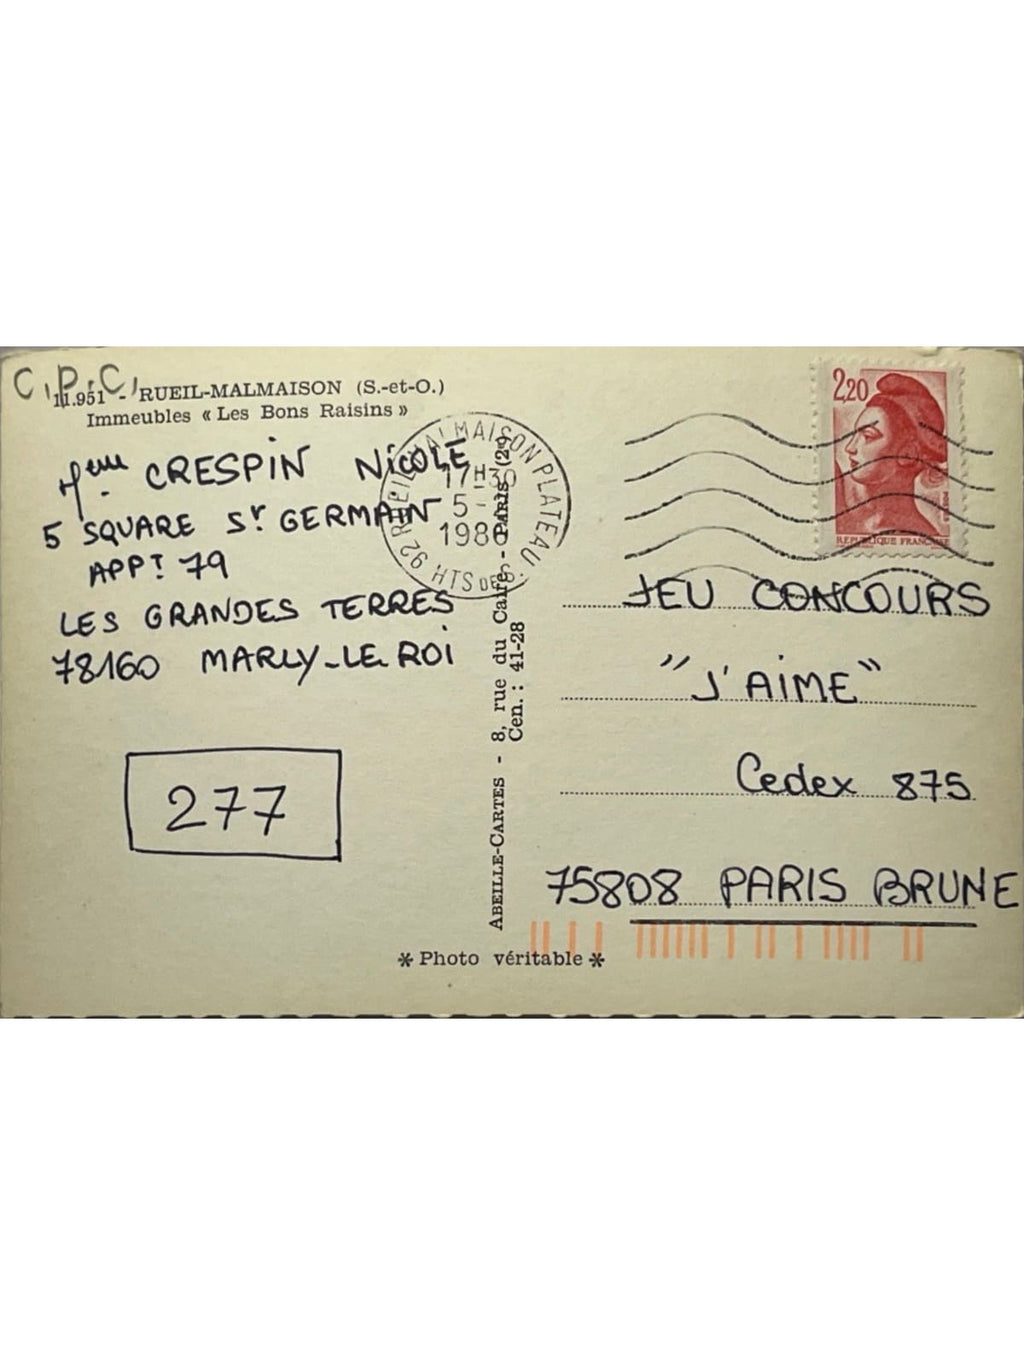 C.P.C.
11.951 - RUEIL-MALMAISON (S.-et-O.)
Immeubles « Les Bons Raisins »
Mme CRESPIN NICOLE
5 SQUARE St GERMAIN
APPT 79
LES GRANDES TERRES
78160 MARLY-LE-ROI
277
92 RUEIL MALMAISON PLATEAU
HTS DE S.
17H30
5-
198
ABEILLE-CARTES - 8, rue du Caire - Paris (2e)
Cen. : 41-28
* Photo véritable *
2,20
REPUBLIQUE FRANCAISE
JEU CONCOURS
"J'AIME"
Cedex 875
75808 PARIS BRUNE